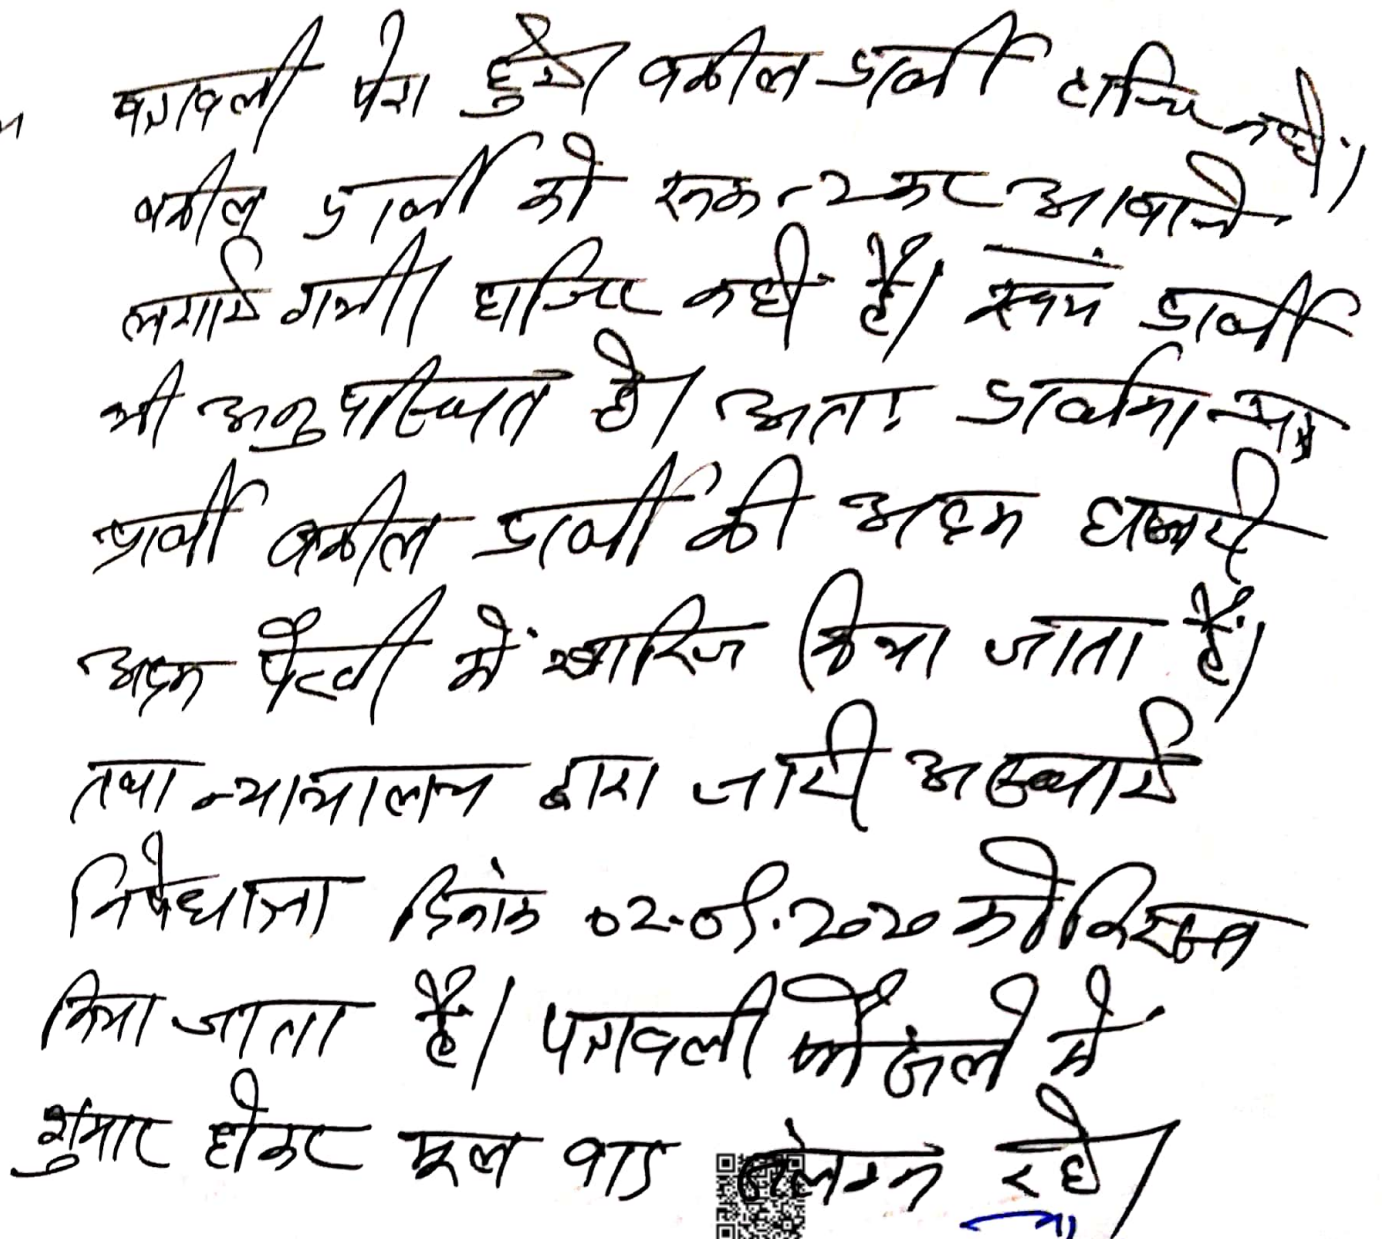 पत्रावली पेश हुयी वकील प्रार्थी हाजिर नहीं।
वकील प्रार्थी को रूक-२ कर आवाजे
लगाई गयी। हाजिर नहीं हैं। स्वयं प्रार्थी
भी अनुपस्थित है। अतः प्रार्थना पत्र
प्रार्थी वकील प्रार्थी की अदम हाजरी
अदम पैरवी में खारिज किया जाता हैं।
तथा न्यायालय द्वारा जारी अस्थाई
निषेधाज्ञा दिनांक 02.09.2020 को
किया जाता हैं। पत्रावली फैसले में
शुमार होकर मूल वाद संलग्न रहे।